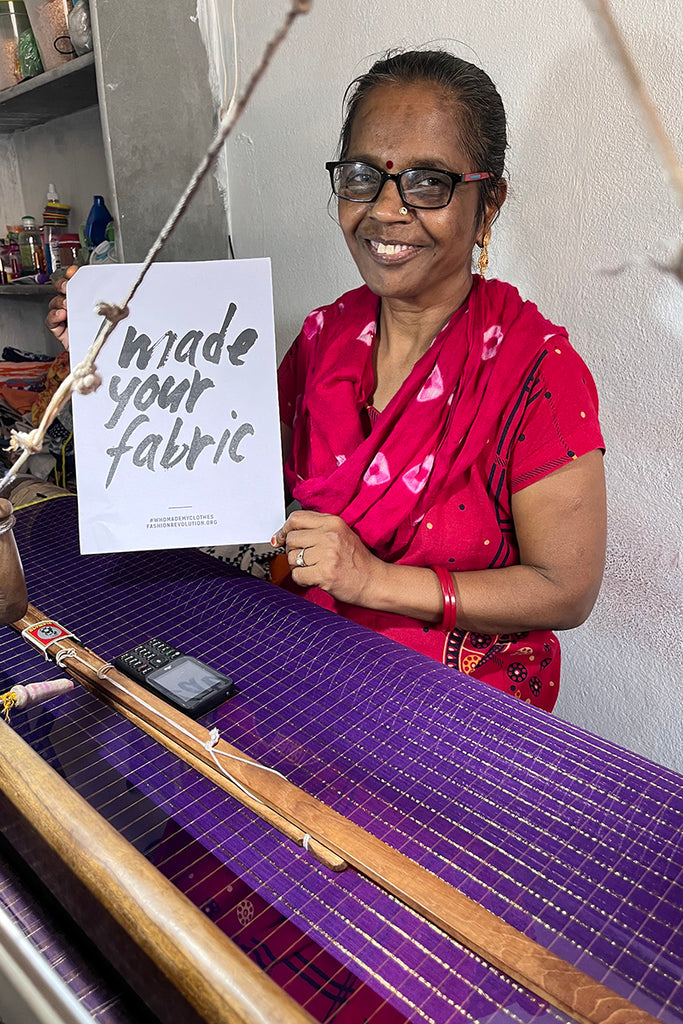 made
your
fabric
#WHOMADEMYCLOTHES
FASHIONREVOLUTION.ORG